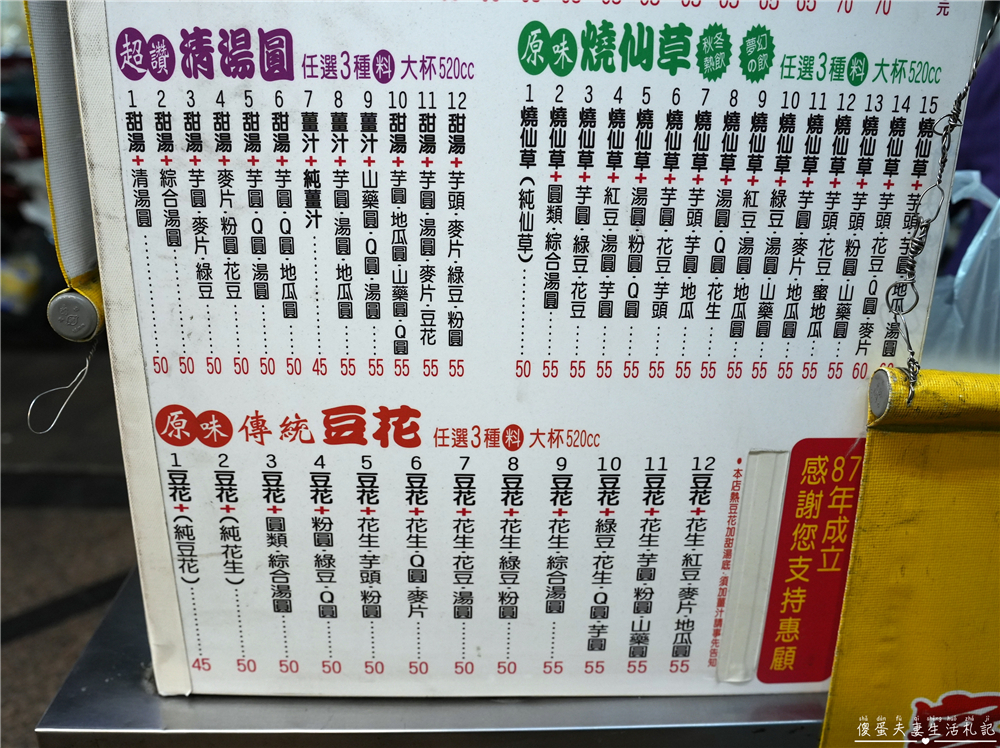 70 70 元
超讚 清湯圓 任選3種料 大杯520cc
1 甜湯+清湯圓 50
2 甜湯+綜合湯圓 50
3 甜湯+芋圓·麥片·綠豆 50
4 甜湯+麥片·粉圓·花豆 50
5 甜湯+芋圓·Q圓·湯圓 50
6 甜湯+芋圓·Q圓·地瓜圓 50
7 薑汁+純薑汁 45
8 薑汁+芋圓·湯圓·地瓜圓 55
9 薑汁+山藥圓·Q圓·湯圓 55
10 甜湯+芋圓·地瓜圓·山藥圓·Q圓 55
11 甜湯+芋圓·湯圓·麥片·豆花 55
12 甜湯+芋頭·麥片·綠豆·粉圓 55
原味 燒仙草 秋冬熱飲 夢幻の飲 任選3種料 大杯520cc
1 燒仙草(純仙草) 50
2 燒仙草+圓類·綜合湯圓 55
3 燒仙草+芋圓·綠豆·花豆 55
4 燒仙草+紅豆·湯圓·芋圓 55
5 燒仙草+湯圓·粉圓·Q圓 55
6 燒仙草+芋圓·花豆·芋頭 55
7 燒仙草+芋頭·芋圓·地瓜 55
8 燒仙草+湯圓·Q圓·花生 55
9 燒仙草+紅豆·湯圓·地瓜圓 55
10 燒仙草+綠豆·湯圓·山藥圓 55
11 燒仙草+芋圓·麥片·地瓜圓 55
12 燒仙草+芋頭·花豆·蜜地瓜 55
13 燒仙草+芋頭·粉圓·山藥圓 55
14 燒仙草+芋頭·花豆·Q圓·麥片 60
15 燒仙草+芋頭·芋圓·地瓜·湯圓
原味 傳統豆花 任選3種料 大杯520cc
1 豆花+(純豆花) 45
2 豆花+(純花生) 50
3 豆花+圓類·綜合湯圓 50
4 豆花+粉圓·綠豆·Q圓 50
5 豆花+花生·芋頭·粉圓 50
6 豆花+花生·Q圓·麥片 50
7 豆花+花生·花豆·湯圓 50
8 豆花+花生·綠豆·粉圓 50
9 豆花+花生·綜合湯圓 55
10 豆花+綠豆·花生·Q圓·芋圓 55
11 豆花+花生·芋圓·粉圓·山藥圓 55
12 豆花+花生·紅豆·麥片·地瓜圓 55
●本店熱豆花加甜湯底、須加薑汁請事先告知
87年成立
感謝您支持惠顧
傻蛋夫妻生活札記